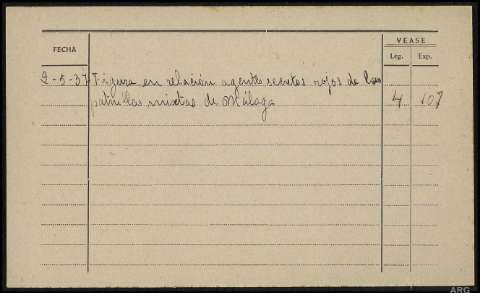 VEASE
FECHA
Leg. Exp.
2-5-37 Figura en relación agentes secretos rojos de las
patrullas mixtas de Málaga 4 107
ARG